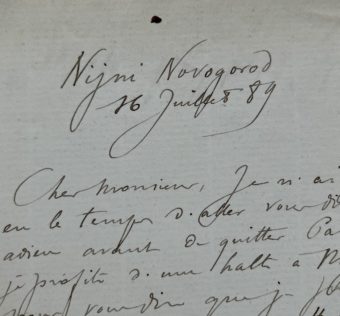 Nijni Novogorod
16 Juillet 89
Cher Monsieur, Je n'ai
eu le temps d'aller vous di
adieu avant de quitter Pa
je profite d'une halte à N
vous dire que je